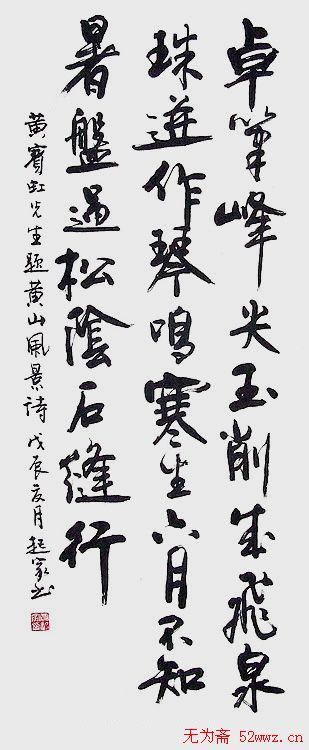 卓筆峰尖玉削成飛泉
珠迸作琴鳴寒生六月不知
暑盤過松陰石縫行
黄賓虹先生题黄山風景诗 戊辰夏月 起家书
无为斋 52wwz.cn